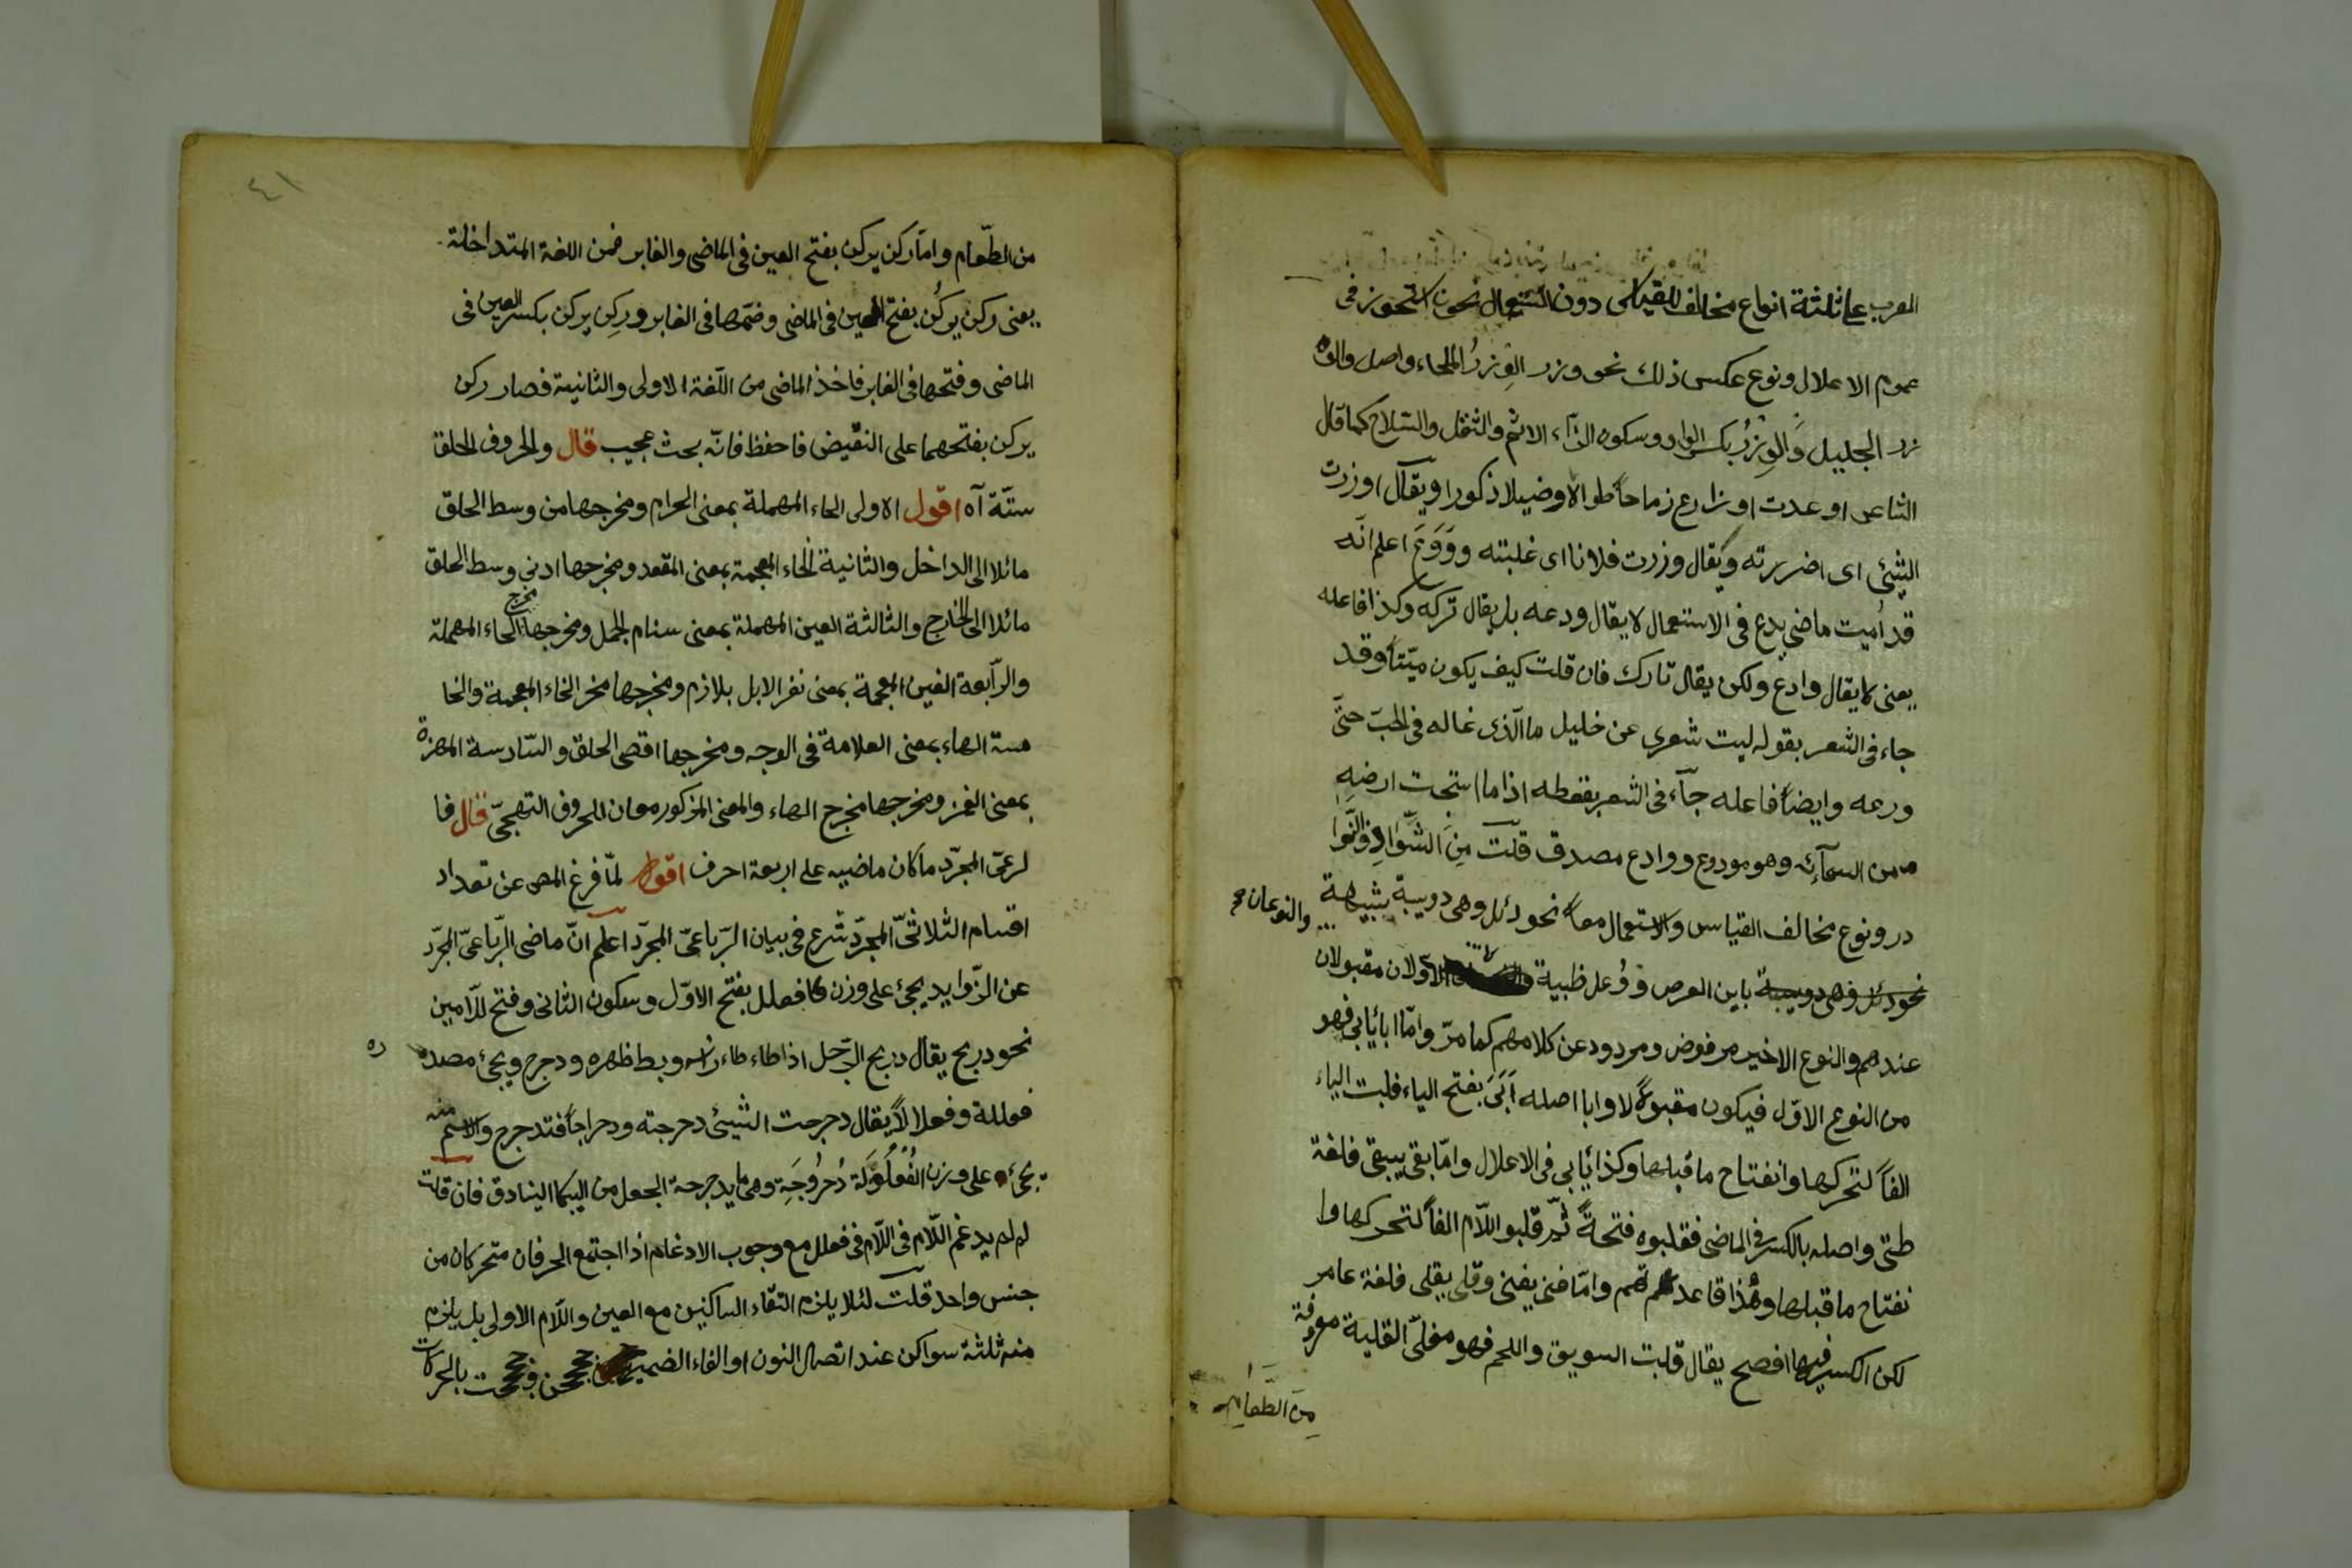 العرب على ثلثة انواع مخالف القياس دون استعمال نحو استحوز فى
عموم الاعلال ونوع عكس ذلك نحو وزر الوزر الملجاء واصل والو
زر الجليل والوزر بكسر الواو وسكون الزاء الاثم والثقل والسلاح كما قال
الشاعر او عدت اوزارع زماحا طوالا وضيلا ذكورا ويقال اوزرت
الشئ اى اضررته ويقال وزرت فلانا اى غلبته وووع اعلم انه
قد اميت ماضى يدع فى الاستعمال لا يقال ودعه بل يقال تركه وكذا فاعله
يعنى لا يقال وادع ولكن يقال تارك فان قلت كيف يكون ميتا وقد
جاء فى الشعر بقوله ليت شعرى عن خليل ما الذى غاله فى الحب حتى
ورعه وايضا فاعله جاء فى الشعر بقعطه اذا ما استحت ارضه
من السمائه وهو مودوع ووادع مصدق قلت من الشواذ والنوا
در ونوع مخالف القياس والاستعمال معا نحو دئل وهى دويبة شبيهة
والنوعان
نحو دئل وهى دويبة باين العرص ووعل ظبية الاولان مقبولان
عندهم والنوع الاخير مرفوض ومردود عن كلامهم كما مر واما ابا يأبى فهو
من النوع الاول فيكون مقبولا لا وابا اصله ابى بفتح الياء قلبت الياء
الفا لتحركها وانفتاح ما قبلها وكذا يأبى فى الاعلال واما بقى يبقى فلغة
طى واصله بالكسر فى الماضى فقلبوه فتحة ثم قلبو اللام الفا لتحركها وا
نفتاح ما قبلها وهذا قاعدتهم واما فنى يفنى وقلى يقلى فلغة عامر
لكن الكسر فيها افصح يقال قليت السويق واللحم فهو مقلى القلية معروفة
من الطعام
٤١
من الطعام واما ركن يركن بفتح العين فى الماضى والغابر فمن اللغة المتداخلة
يعنى ركن يركن بفتح العين فى الماضى وضمها فى الغابر وركن يركن بكسر العين فى
الماضى وفتحها فى الغابر فاخذ الماضى من اللغة الاولى والثانية فصار ركن
يركن بفتحهما على النقيض فاحفظ فانه بحث عجيب قال والحروف الحلق
ستة آه اقول الاولى الحاء المهملة بمعنى الحرام ومخرجها من وسط الحلق
مائلا الى الداخل والثانية الخاء المعجمة بمعنى المقعد ومخرجها ادنى وسط الحلق
مائلا الى الخارج والثالثة العين المهملة بمعنى سنام الجمل ومخرجها مخرج الحاء المهملة
والرابعة الغين المعجمة بمعنى نفر الابل بلازم ومخرجها مخر الخاء المعجمة والخا
مسة الهاء بمعنى العلامة فى الوجه ومخرجها اقصى الحلق والسادسة الهمزة
بمعنى الغز ومخرجها مخرج الهاء والمعنى المذكور معان للحروف التهجى قال فا
لرعى المجرد ما كان ماضيه على اربعة احرف اقول لما فرغ المص عن تعداد
اقسام الثلاثى المجرد شرع فى بيان الرباعى المجرد اعلم ان ماضى الرباعى المجرد
عن الزوايد يجئ على وزن فعلل بفتح الاول وسكون الثانى وفتح اللامين
نحو دربح يقال دربح الرجل اذا طاء طاء راس وبط ظهره ودحرج ويجئ مصدره
فعللة وفعلالا يقال دحرجت الشيئ دحرجته ودحراجا فتدحرج والاسم منه
يجئ على وزن الفعلولة دحروجة وهى ما يدحرجة الجعل من البنادق فان قلت
لم لم يدغم اللام فى اللام فى فعلل مع وجوب الادغام اذا اجتمع الحرفان متحركان من
جنس واحد قلت لئلا يلزم التقاء الساكنين مع العين واللام الاولى بل يلزم
منه ثلثة سواكن عند اتصال النون او الفاء الضمير بالحركات